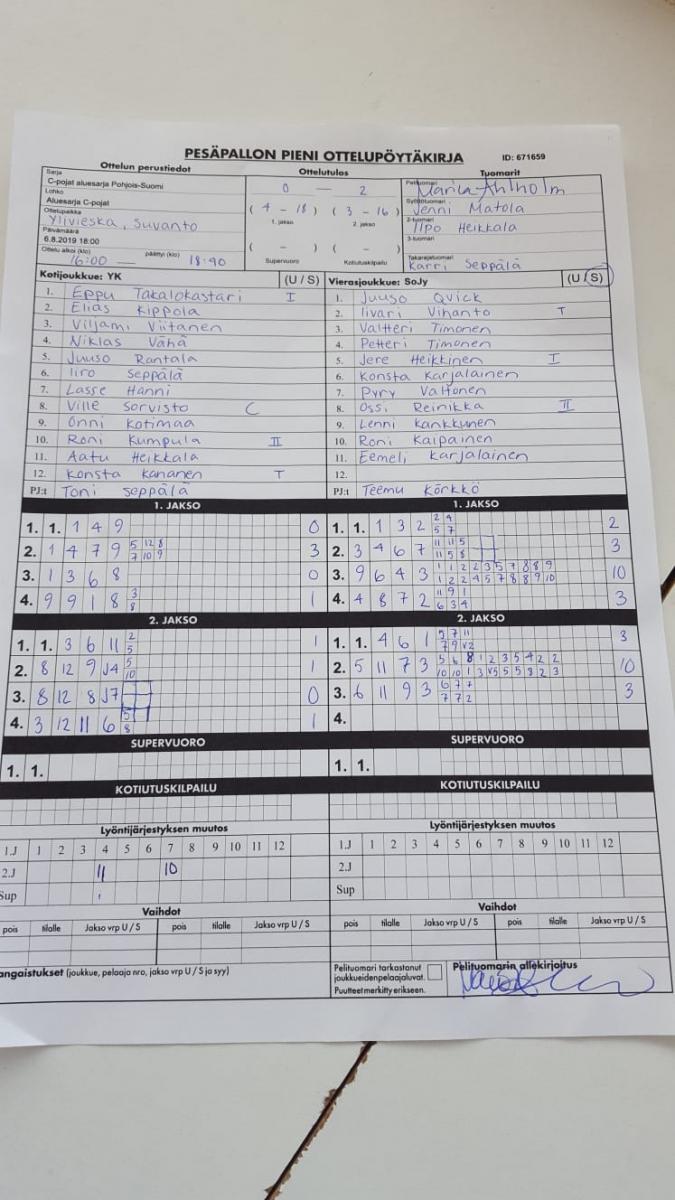 PESÄPALLON PIENI OTTELUPÖYTÄKIRJA ID: 671659
Ottelun perustiedot Ottelutulos Tuomarit
Sarja
C-pojat aluesarja Pohjois-Suomi
Lohko
Aluesarja C-pojat
Ottelupaikka
Ylivieska, Suvanto
Päivämäärä
6.8.2019 18:00
Ottelu alkoi (klo) päättyi (klo)
16:00 — 18:40
0 — 2
( 4 - 18 ) ( 3 - 16 )
1. jakso 2. jakso
( - ) ( - )
Supervuoro Kotiutuskilpailu
Pelituomari
Marika Ahlholm
Syöttötuomari
Jenni Matola
2-tuomari
Ilpo Heikkala
3-tuomari
Takarajatuomari
Karri Seppälä
Kotijoukkue: YK (U / S) Vierasjoukkue: SoJy (U / S)
1. Eppu Takalokastari I
2. Elias Kippola
3. Viljami Viitanen
4. Niklas Vähä
5. Juuso Rantala
6. Iiro Seppälä
7. Lasse Hänni
8. Ville Sorvisto C
9. Onni Kotimaa
10. Roni Kumpula II
11. Aatu Heikkala
12. Konsta Kananen T
PJ:t Toni Seppälä
1. Juuso Quick
2. Iivari Vihanto T
3. Valtteri Timonen
4. Petteri Timonen
5. Jere Heikkinen I
6. Konsta Karjalainen
7. Pyry Valtonen
8. Ossi Reinikka II
9. Lenni Kankkunen
10. Roni Kaipainen
11. Eemeli Karjalainen
12.
PJ:t Teemu Körkkö
1. JAKSO 1. JAKSO
1. 1. 1 4 9 0
2. 1 4 7 9 5 12 8 3
7 10 9
3. 1 3 6 8 0
4. 9 9 1 8 3 1
8
1. 1. 1 3 2 2 4 2
5 7
2. 3 4 6 7 11 11 5 3
11 5 8
3. 9 6 4 3 1 1 2 2 3 5 7 8 8 9 10
1 2 2 4 5 7 8 8 9 10
4. 4 8 7 2 11 9 1 3
6 3 4
2. JAKSO 2. JAKSO
1. 1. 3 6 11 2 1
5
2. 8 12 9 J4 5 1
10
3. 8 12 8 J7 0
4. 3 12 11 6 5 1
8
1. 1. 4 6 1 5 7 11 3
7 9 V2
2. 5 11 7 3 5 6 8 1 2 3 5 4 2 2 10
10 10 1 3 V5 5 5 8 2 3
3. 6 11 9 3 6 7 7 3
7 7 2
4.
SUPERVUORO SUPERVUORO
1. 1. 1. 1.
KOTIUTUSKILPAILU KOTIUTUSKILPAILU
Lyöntijärjestyksen muutos Lyöntijärjestyksen muutos
1.J 1 2 3 4 5 6 7 8 9 10 11 12 1.J 1 2 3 4 5 6 7 8 9 10 11 12
2.J 11 10 2.J
Sup Sup
Vaihdot Vaihdot
pois tilalle Jakso vrp U / S pois tilalle Jakso vrp U / S pois tilalle Jakso vrp U / S pois tilalle Jakso vrp U / S
angaistukset (joukkue, pelaaja nro, jakso vrp U / S ja syy)
Pelituomari tarkastanut
joukkueidenpelaajaluvat.
Puutteet merkitty erikseen.
Pelituomarin allekirjoitus